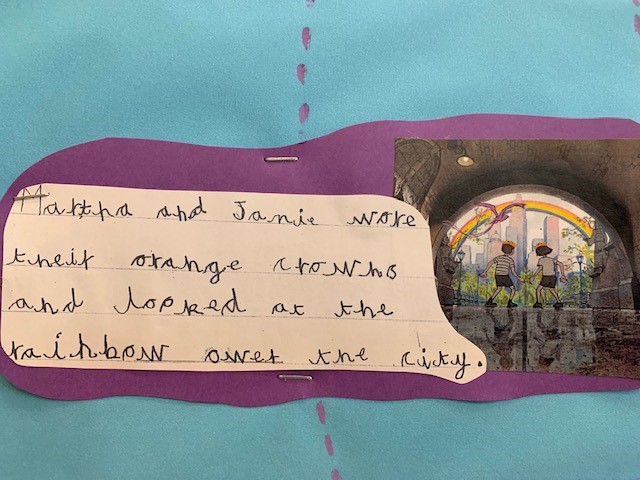 Martha and Janie wore
their orange crowns
and looked at the
rainbow ower the city.